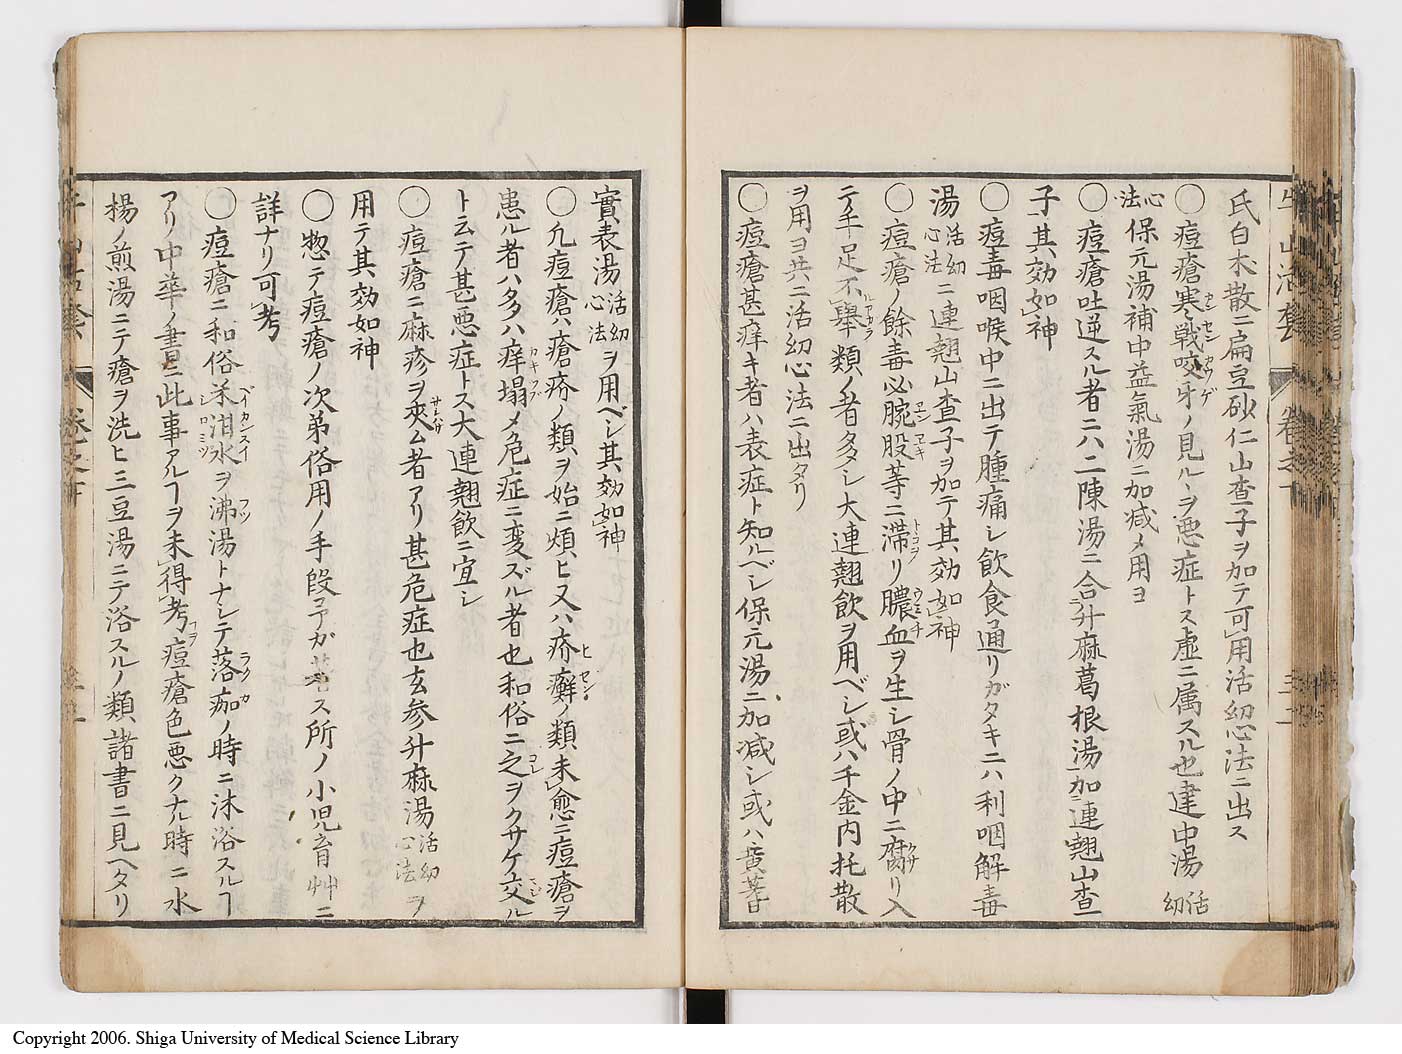 牛山活套 卷之下
氏白木散ニ扁豆砂仁山査子ヲ加テ可用活幼心法ニ出ス
○痘瘡寒戰咬牙ノ見ルヽヲ悪症トス虚ニ属スル也建中湯活幼
心法保元湯補中益氣湯ニ加减メ用ヨ
○痘瘡吐逆スル者ニハ二陳湯ニ合升麻葛根湯加連翹山査
子其効如神
○痘毒咽喉中ニ出テ腫痛シ飲食通リガタキニハ利咽解毒
湯活幼心法ニ連翹山査子ヲ加テ其効如神
○痘瘡ノ餘毒必腕股等ニ滞リ膿血ヲ生シ骨ノ中ニ腐リ入
テ手足不舉類ノ者多シ大連翹飲ヲ用ベシ或ハ千金内托散
ヲ用ヨ共ニ活幼心法ニ出タリ
○痘瘡甚痒キ者ハ表症ト知ルベシ保元湯ニ加减シ或ハ黄芪
實表湯活幼心法ヲ用ベシ其効如神
○凢痘瘡ハ瘡疥ノ類ヲ始ニ煩ヒ又ハ疥癬ノ類未愈ニ痘瘡ヲ
患ル者ハ多ハ痒塌メ危症ニ変ズル者也和俗ニ之ヲクサケ交ル
ト云テ甚悪症トス大連翹飲ニ宜シ
○痘瘡ニ麻疹ヲ夾ム者アリ甚危症也玄参升麻湯活幼心法ヲ
用テ其効如神
○惣テ痘瘡ノ次弟俗用ノ手段予ガ著ス所ノ小児育艸ニ
詳ナリ可考
○痘瘡ニ和俗米泔水ヲ沸湯トナシテ落痂ノ時ニ沐浴スルヿ
アリ中華ノ書ニ此事アルヿヲ未得考痘瘡色悪クナル時ニ水
揚ノ煎湯ニテ瘡ヲ洗ヒ三豆湯ニテ浴スルノ類諸書ニ見ヘタリ
卷之下
Copyright 2006. Shiga University of Medical Science Library